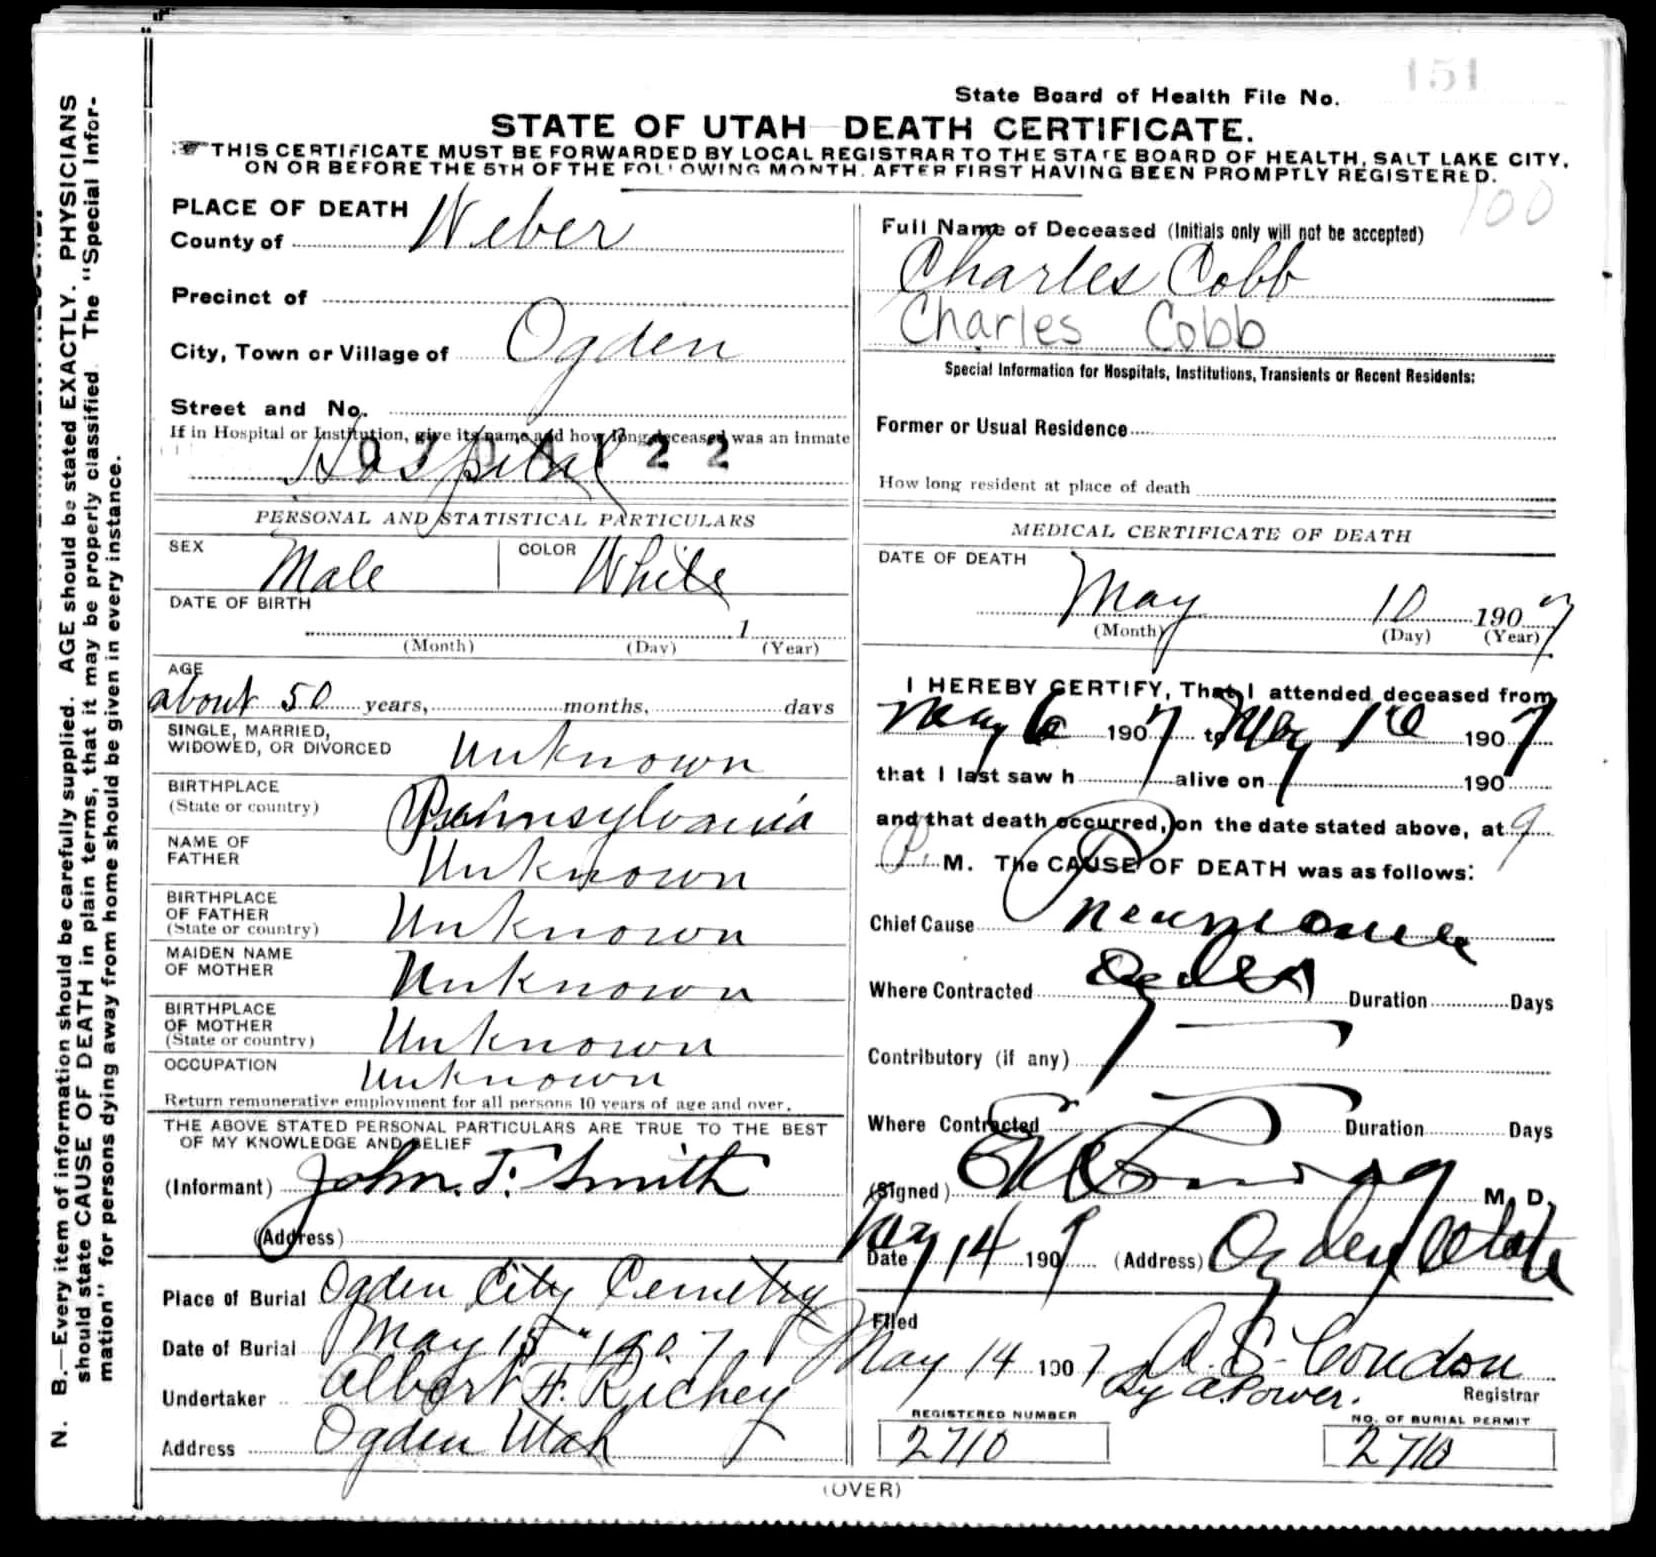 151
State Board of Health File No.
STATE OF UTAH—DEATH CERTIFICATE.
THIS CERTIFICATE MUST BE FORWARDED BY LOCAL REGISTRAR TO THE STATE BOARD OF HEALTH, SALT LAKE CITY,
ON OR BEFORE THE 5TH OF THE FOLLOWING MONTH, AFTER FIRST HAVING BEEN PROMPTLY REGISTERED.
N. B.—Every item of information should be carefully supplied. AGE should be stated EXACTLY. PHYSICIANS
should state CAUSE OF DEATH in plain terms, that it may be properly classified. The "Special Infor-
mation" for persons dying away from home should be given in every instance.
PLACE OF DEATH
County of Weber
Precinct of
City, Town or Village of Ogden
Street and No.
If in Hospital or Institution, give its name and how long deceased was an inmate
Hospital
PERSONAL AND STATISTICAL PARTICULARS
SEX Male COLOR White
DATE OF BIRTH
1
(Month) (Day) (Year)
AGE
about 50 years, months, days
SINGLE, MARRIED,
WIDOWED, OR DIVORCED Unknown
BIRTHPLACE
(State or country) Pennsylvania
NAME OF
FATHER Unknown
BIRTHPLACE
OF FATHER
(State or country) Unknown
MAIDEN NAME
OF MOTHER Unknown
BIRTHPLACE
OF MOTHER
(State or country) Unknown
OCCUPATION Unknown
Return remunerative employment for all persons 10 years of age and over.
THE ABOVE STATED PERSONAL PARTICULARS ARE TRUE TO THE BEST
OF MY KNOWLEDGE AND BELIEF
(Informant) John. T. Smith
(Address)
Place of Burial Ogden City Cemetry
Date of Burial May 15" 190.7
Undertaker Albert H. Richey
Address Ogden Utah
100
Full Name of Deceased (Initials only will not be accepted)
Charles Cobb
Charles Cobb
Special Information for Hospitals, Institutions, Transients or Recent Residents:
Former or Usual Residence
How long resident at place of death
MEDICAL CERTIFICATE OF DEATH
DATE OF DEATH
May 10 1907
(Month) (Day) (Year)
I HEREBY CERTIFY, That I attended deceased from
May 6 1907 to May 10 1907
that I last saw h alive on 190
and that death occurred, on the date stated above, at 9
P. M. The CAUSE OF DEATH was as follows:
Chief Cause Pneumonia
Where Contracted Ogden Duration Days
Contributory (if any)
Where Contracted Duration Days
(Signed) M. D.
Date May 14 1907 (Address) Ogden Utah
Filed
May 14 1907 A. S. Condon
By A. Power. Registrar
REGISTERED NUMBER
2710
NO. OF BURIAL PERMIT
2710
(OVER)